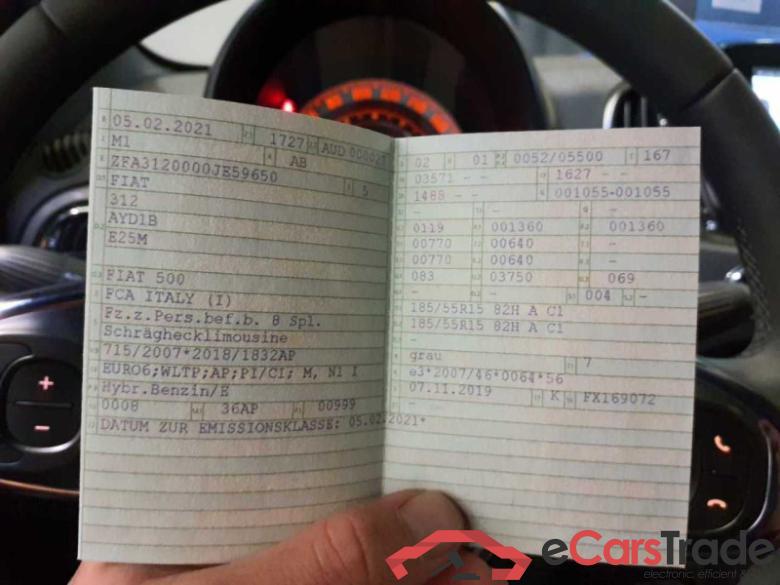 05.02.2021 1727 AUD 000021
M1 AB
ZFA3120000JE59650 5
FIAT
312
AYD1B
E25M
FIAT 500
FCA ITALY (I)
Fz.z.Pers.bef.b. 8 Spl.
Schräghecklimousine
715/2007*2018/1832AP
EURO6;WLTP;AP;PI/CI; M, N1 I
Hybr.Benzin/E
0008 36AP 00999
DATUM ZUR EMISSIONSKLASSE: 05.02.2021*
02 01 0052/05500 167
03571 - - 1627 - -
1488 - - 001055-001055
- - -
0119 001360 001360
00770 00640 -
00770 00640 -
083 03750 069
- - 004 -
185/55R15 82H A C1
185/55R15 82H A C1
-
grau 7
e3*2007/46*0064*56
07.11.2019 K FX169072
-
eCarsTrade
electronic, efficient &